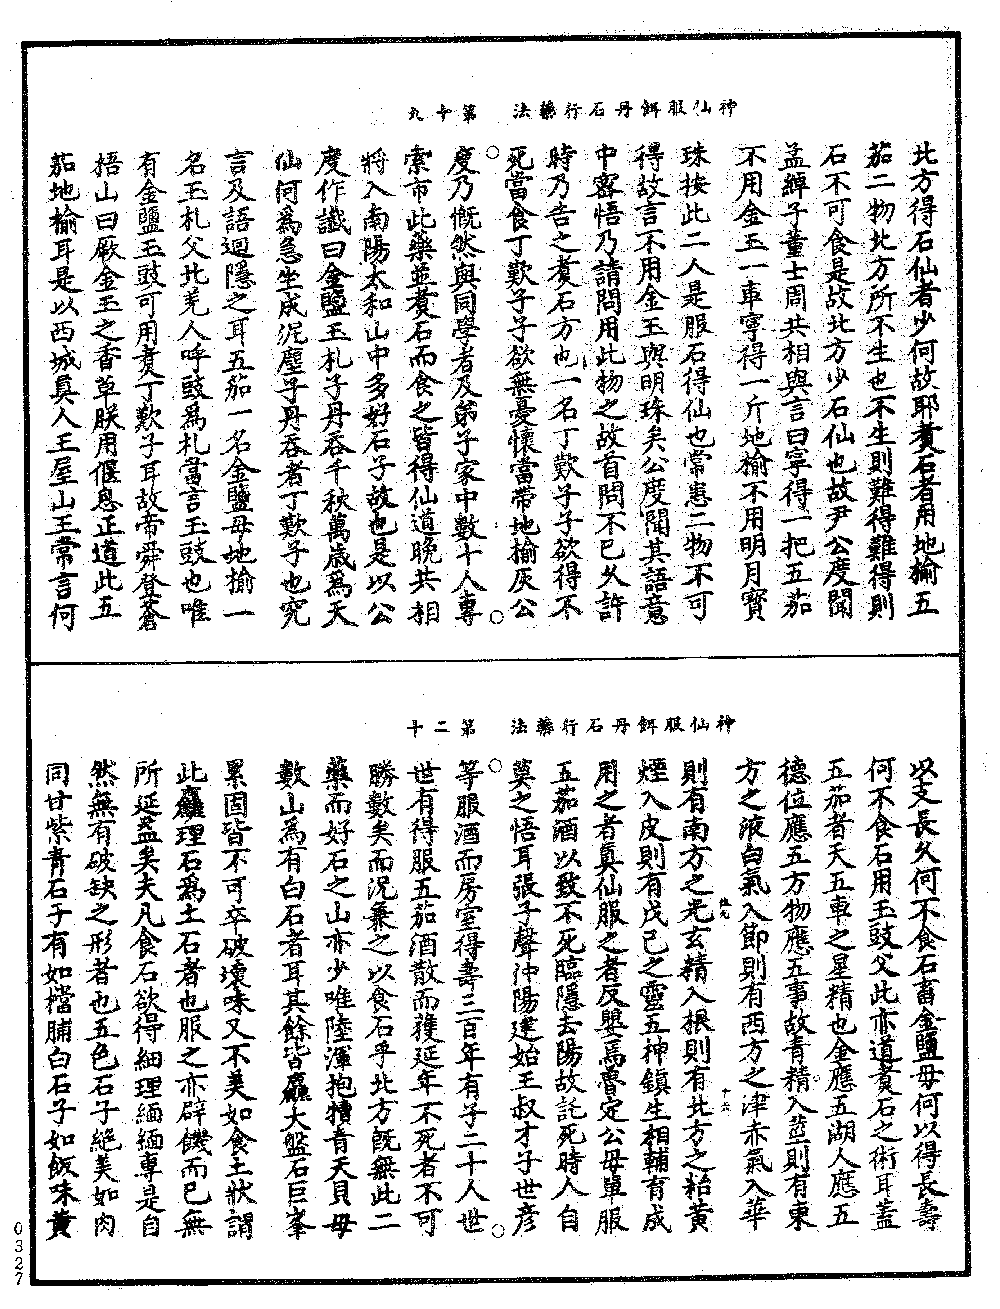 神仙服餌丹石行藥法　第十九
北方得石仙者少何故耶煑石者用地榆五
茄二物北方所不生也不生則難得難得則
石不可食是故北方少石仙也故尹公度聞
孟綽子董士周共相與言曰寧得一把五茄
不用金玉一車寧得一斤地榆不用明月寶
珠按此二人是服石得仙也常患二物不可
得故言不用金玉與明珠矣公度聞其語意
中密悟乃請問用此物之故首問不已久許
時乃告之煑石方也一名丁歎子子欲得不
死當食丁歎子子欲無憂懷當帶地榆灰公
度乃慨然與同學者及弟子家中數十人專
索市此藥並煑石而食之皆得仙道晚共相
將入南陽太和山中多好石子故也是以公
度作讖曰金鹽玉札子丹吞千秋萬歲爲天
仙何爲急生成泥塵子丹吞者丁歎子也究
言及語迴隱之耳五茄一名金鹽母地榆一
名玉札父北羌人呼豉爲札當言玉豉也唯
有金鹽玉豉可用煑丁歎子耳故帝舜登蒼
梧山曰厥金玉之香草朕用偃息正道此五
茄地榆耳是以西城真人王屋山王常言何
神仙服餌丹石行藥法　第二十
以支長久何不食石畜金鹽母何以得長壽
何不食石用玉豉父此亦道煑石之術耳蓋
五茄者天五車之星精也金應五湖人應五
德位應五方物應五事故青精入莖則有東
方之液白氣入節則有西方之津赤氣入華
則有南方之光玄精入根則有北方之粘黄
煙入皮則有戊己之靈五神鎮生相輔育成
用之者真仙服之者反嬰焉魯定公母單服
五茄酒以致不死臨隱去陽故託死時人自
莫之悟耳張子聲沖陽建始王叔才子世彦
等服酒而房室得壽三百年有子二十人世
世有得服五茄酒散而獲延年不死者不可
勝數矣而況兼之以食石乎北方既無此二
藥而好石之山亦少唯陸渾抱犢青天貝母
數山爲有白石者耳其餘皆麤大盤石巨峯
累固皆不可卒破壞味又不美如食土狀謂
此麤理石爲土石者也服之亦辟饑而已無
所延益矣夫凡食石欲得細理緬緬專是自
然無有破缺之形者也五色石子絕美如肉
同甘紫青石子有如檔脯白石子如飯味黄
0327